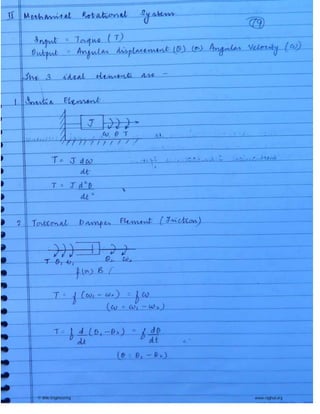 II Mechanical Rotational System
79
Input = Torque (T)
Output = Angular displacement (θ) (or) Angular Velocity (ω)
The 3 ideal elements are -
1. Inertia Element
J
ω θ T
T = J dω
dt
T = J d²θ
dt²
2. Torsional Damper Element (Friction)
T θ₁ ω₁ θ₂ ω₂
f (or) B
T = f (ω₁ - ω₂) = f ω
(ω = ω₁ - ω₂)
T = f d (θ₁ - θ₂) = f dθ
dt dt
(θ = θ₁ - θ₂)